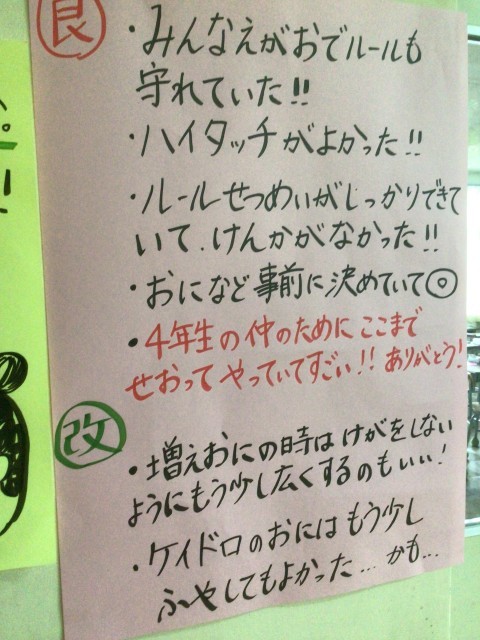 良
・みんなえがおでルールも
守れていた!!
・ハイタッチがよかった!!
・ルールせつめいがしっかりできて
いて、けんかがなかった!!
・おになど事前に決めていて◎
・4年生の仲のためにここまで
せおってやっていてすごい!! ありがとう!
改
・増えおにの時はけがをしない
ようにもう少し広くするのもいい!
・ケイドロのおにはもう少し
ふやしてもよかった…かも…